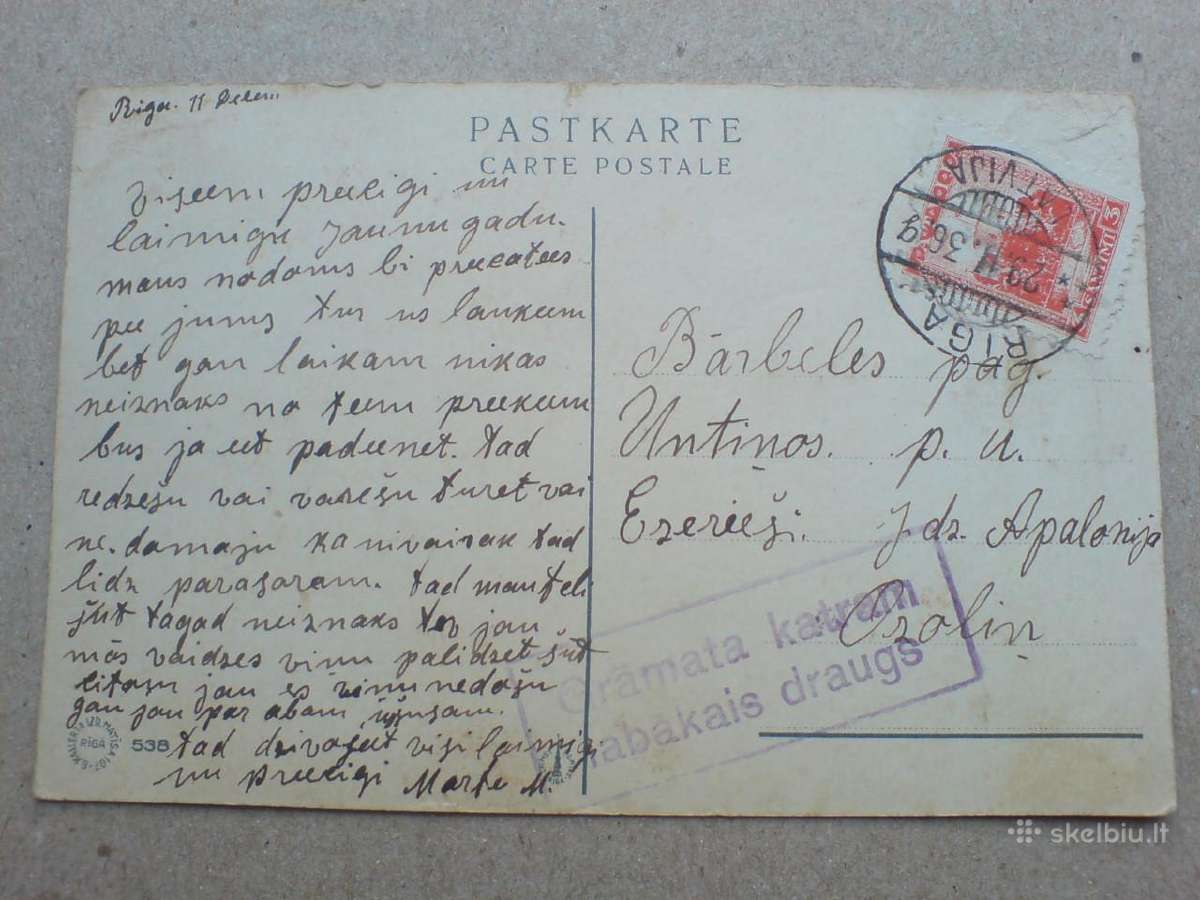 Riga. 11 Decem
PASTKARTE
CARTE POSTALE
Viseem preecigi un
laimigu Jaunu gadu.
mans nodoms bi preecatees
pee jums tur us laukeem
bet gan laikam nikas
neiznaks no teem preekeem
bus ja eet padeenet. tad
redzešu vai varešu turet vai
ne. domaju ka nivairak tad
lidz parasaram. tad manteli
šut tagad neiznaks tev jau
mās vaidzes vinu palidzet šut
citašu jau es vinu nedošu
gan jau par abam
tad dzivojeet visi laimigi
un preecigi Marte M.
Bārbeles pag.
Untinos. p. n.
Ezerieši. Jdz. Apalonija
Ozoliņ
RIGA
LATVIJA
3 SANTIMI
Grāmata katram
labākais draugs
RIGA
538
skelbiu.lt